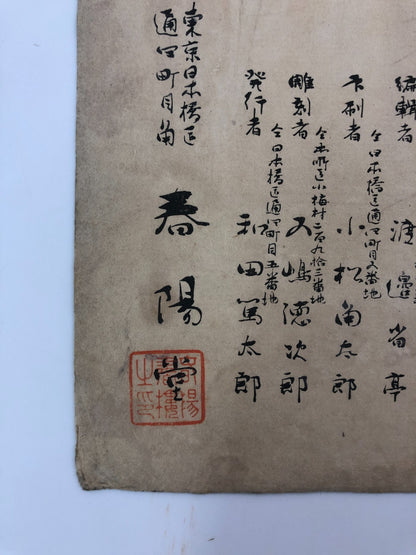 編輯者 渡邊省亭
仝日本橋區通四町目五番地
印刷者 小松角太郎
仝本所區小梅村二百九拾三番地
雕刻者 五嶋德次郎
仝日本橋區通四町目五番地
発行者 和田篤太郎
東京日本橋區
通四町目角
春陽堂